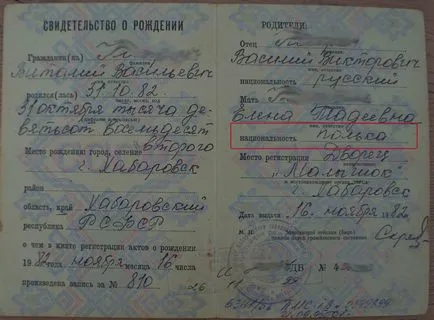 СВИДЕТЕЛЬСТВО О РОЖДЕНИИ
Гражданин(ка) Гл
фамилия
Виталий Васильевич
имя, отчество
родился(лась) 31.10.82.
число, месяц, год
31 октября тысяча де-
вятьсот восемьдесят
второго
Место рождения: город, селение
г. Хабаровск
район
область, край Хабаровский
республика РСФСР
о чем в книге регистрации актов о рождении
1982 года ноября месяца 16 числа
произведена запись за № 810
РОДИТЕЛИ:
Отец Гл
фамилия
Василий Викторович
имя, отчество
национальность русский
Мать
фамилия
Елена Тадеевна
имя, отчество
национальность полька
Место регистрации Дворец
"Малышок"
Хабаровск
Дата выдачи 16 ноября 1982
М. П.
ДВ №